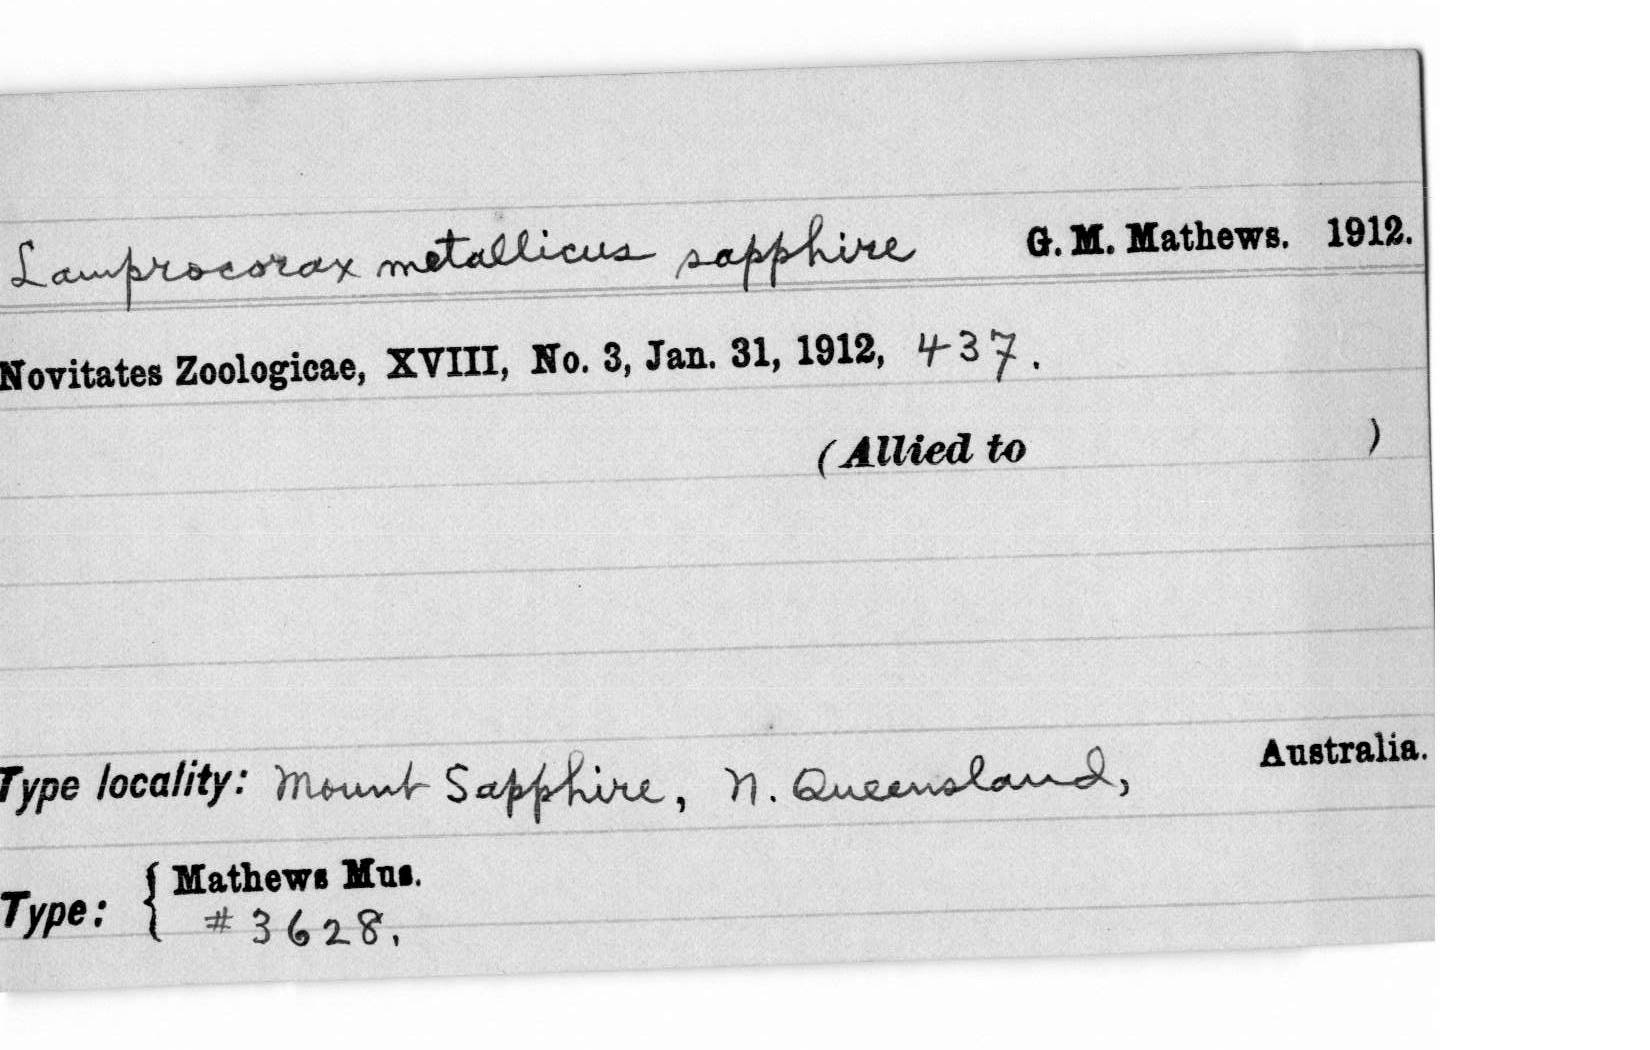 Lamprocorax metallicus sapphire G. M. Mathews. 1912.
Novitates Zoologicae, XVIII, No. 3, Jan. 31, 1912, 437.
(Allied to )
Type locality: Mount Sapphire, N. Queensland, Australia.
Type: { Mathews Mus.
#3628.